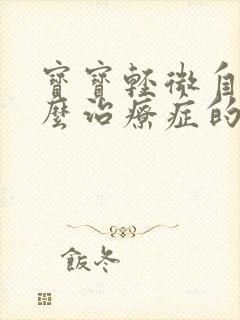 寶寶輕微自
麼治療症的
飯冬